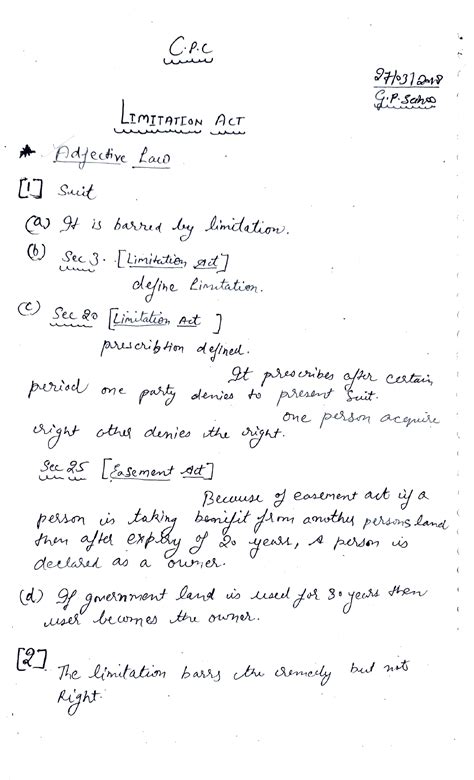 C.P.C
27/03/2018
G.P. Sahoo
LIMITATION ACT
* Adjective Law
[1] Suit
(a) It is barred by limitation.
(b) Sec 3. [Limitation Act]
define Limitation.
(c) Sec 20 [Limitation Act]
prescribtion defined.
It prescribes after certain
period one party denies to present suit.
one person acquire
right other denies the right.
Sec 25 [Easement Act]
Because of easement act if a
person is taking benifit from another persons land
then after expiry of 20 years, A person is
declared as a owner.
(d) If government land is used for 30 years then
user becomes the owner.
[2]
The limitation barrs the remedy but not
Right.